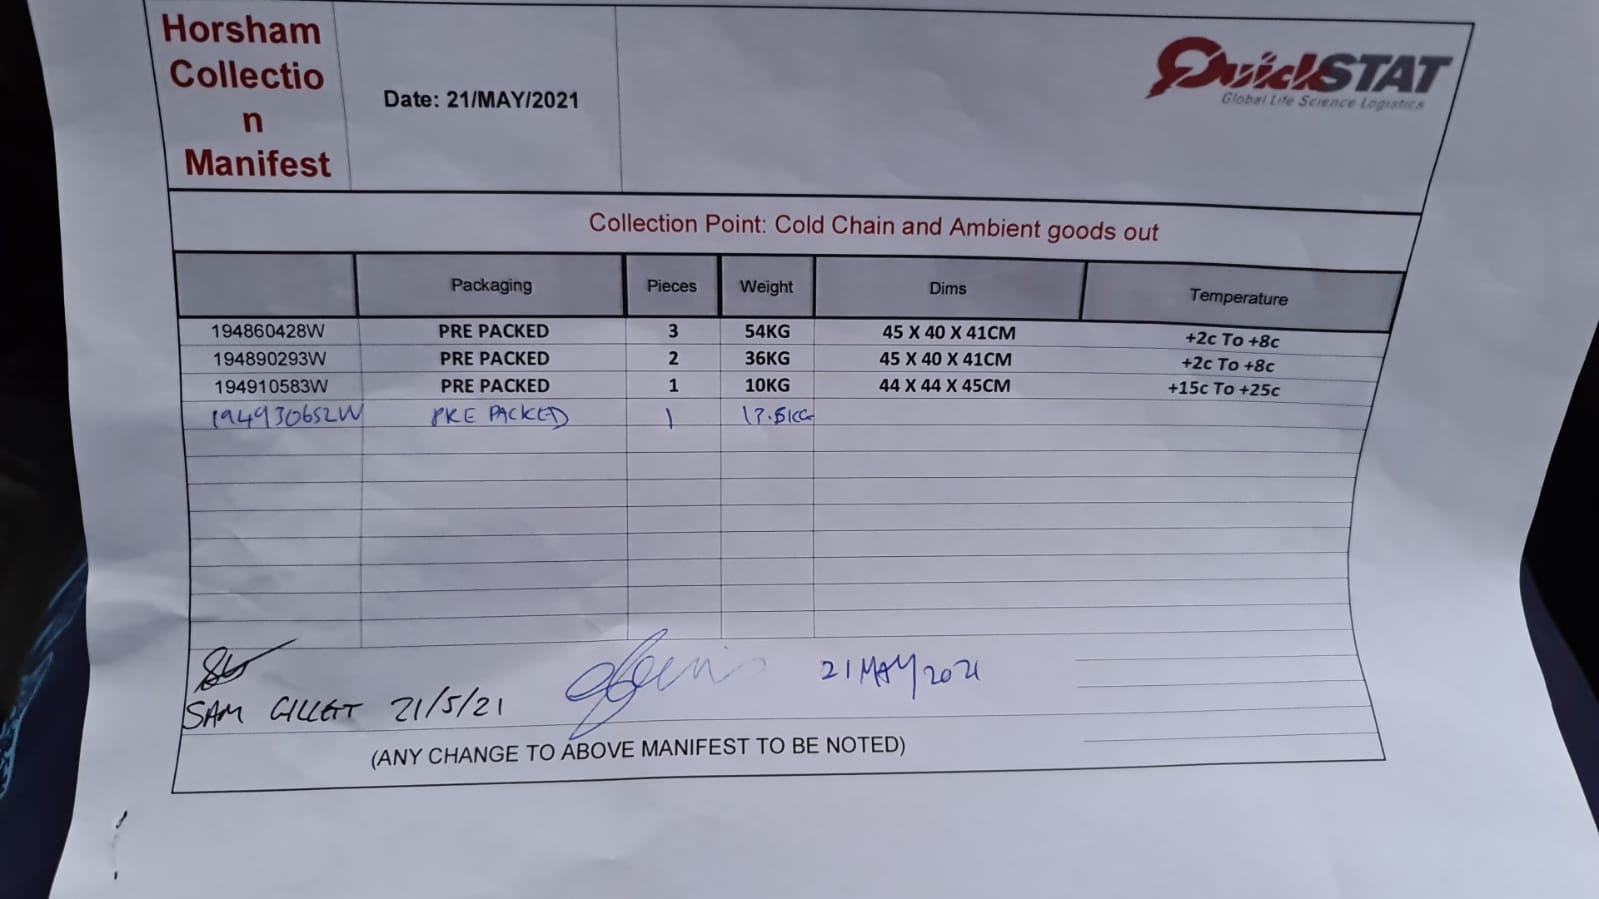 Horsham
Collectio
n
Manifest
Date: 21/MAY/2021
QuickSTAT
Global Life Science Logistics
Collection Point: Cold Chain and Ambient goods out
Packaging Pieces Weight Dims Temperature
194860428W PRE PACKED 3 54KG 45 X 40 X 41CM +2c To +8c
194890293W PRE PACKED 2 36KG 45 X 40 X 41CM +2c To +8c
194910583W PRE PACKED 1 10KG 44 X 44 X 45CM +15c To +25c
194930652W PRE PACKED 1
21 MAY 2021
SAM GILLETT 21/5/21
(ANY CHANGE TO ABOVE MANIFEST TO BE NOTED)